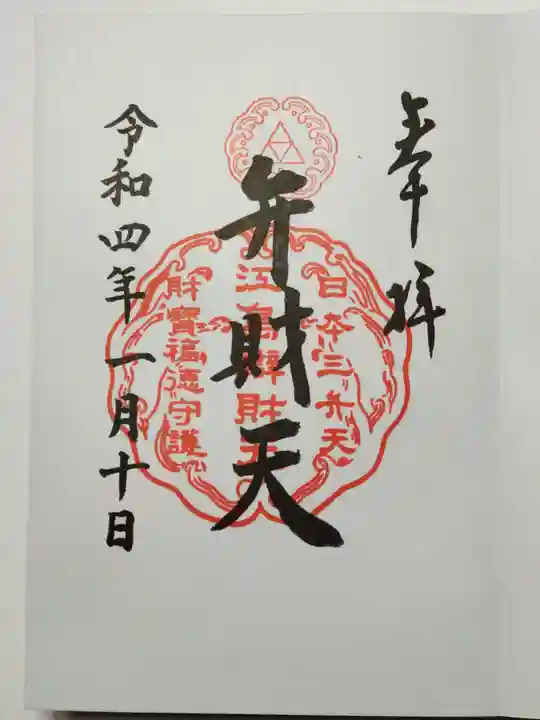 奉拝
日本三弁天
江島辨財天
財寶福徳守護
弁財天
令和四年一月十日